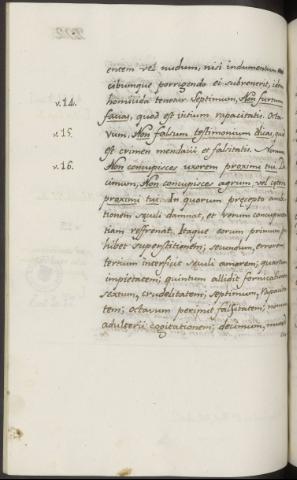 entem vel nudum, nisi indumentum
cibumque porrigendo ei subvenerit,
homicida teneatur. Septimum, Non furtum
v. 14.
facias, quod est vitium rapacitatis. Octa-
v. 15.
vum, Non falsum testimonium dicas, quod
est crimen mendacii et falsitatis. Nonum
v. 16.
Non concupisces uxorem proximi tui. De-
cimum, Non concupisces agrum vel
proximi tui: In quorum precepto ambi-
tionem sæculi damnat, et rerum concupiscen-
tiam refrenat. Itaque eorum primum pro-
hibet superstitionem; secundum, errorem
tertium interficit sæculi amorem; quartum
impietatem; quintum allidit fornicationem
sextum, crudelitatem; septimum, rapacita-
tem; octavum perimit falsitatem; nonum
adulterii cogitationem; decimum,